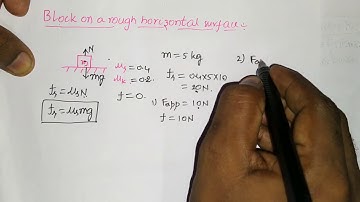 Block on a rough horizontal surface:-
N
m
mg
μs = 0.4
μk = 0.2
fs = μsN
fs = μsmg
f = 0.
m = 5 kg
fs = 0.4x5x10
= 20N.
1) Fapp = 10N
f = 10N
2) Fa